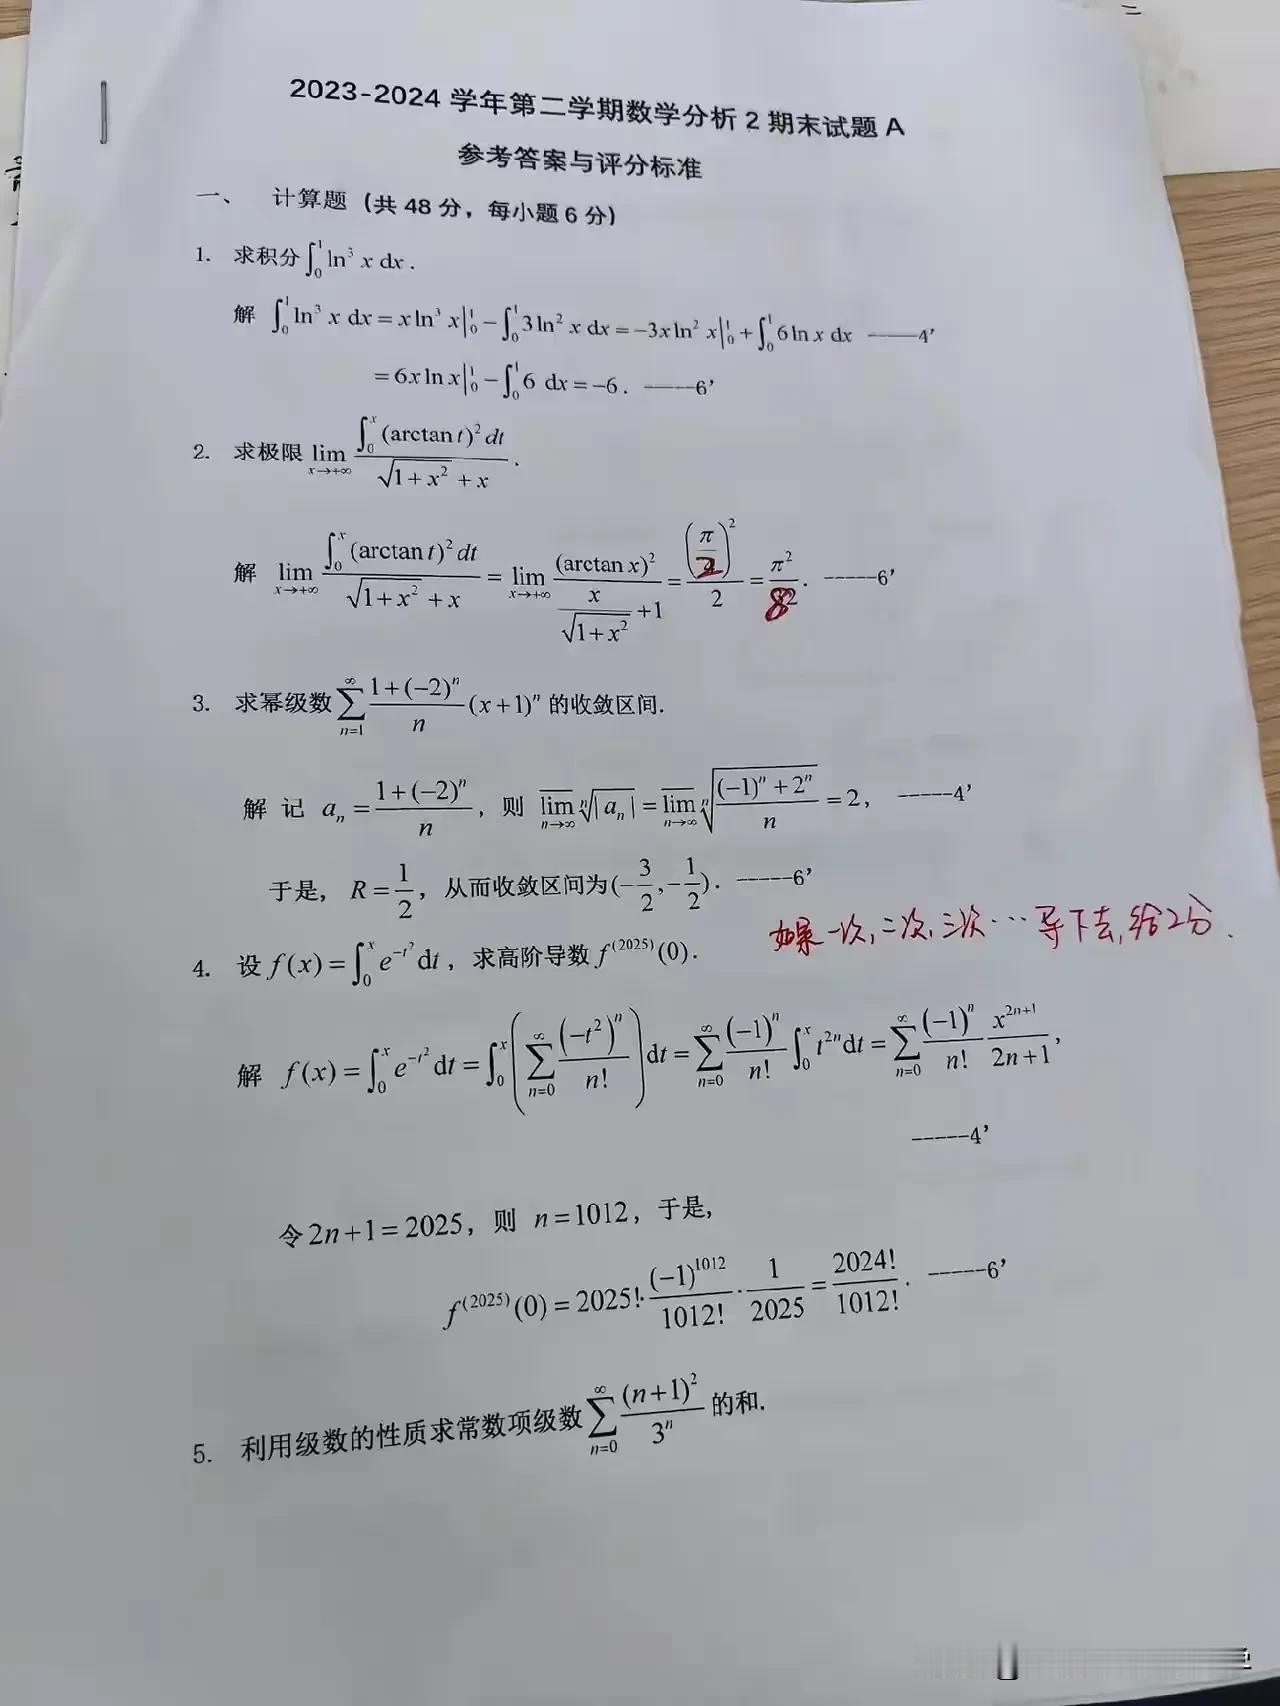 2023-2024 学年第二学期数学分析 2 期末试题 A
参考答案与评分标准
一、 计算题（共 48 分，每小题 6 分）
1. 求积分 ∫₀¹ ln³ x dx .
解 ∫₀¹ ln³ x dx = x ln³ x|₀¹ − ∫₀¹ 3 ln² x dx = −3x ln² x|₀¹ + ∫₀¹ 6 ln x dx ——4’
= 6x ln x|₀¹ − ∫₀¹ 6 dx = −6 . -----6’
2. 求极限 lim_{x→+∞} (∫₀ˣ (arctan t)² dt)/(√(1+x²) + x) .
解 lim_{x→+∞} (∫₀ˣ (arctan t)² dt)/(√(1+x²) + x) = lim_{x→+∞} (arctan x)²/(x/√(1+x²) +1) = (π/2)²/2 = π²/8 . -----6’
3. 求幂级数 ∑_{n=1}^{∞} (1+(−2)ⁿ)/n (x+1)ⁿ 的收敛区间.
解 记 aₙ = (1+(−2)ⁿ)/n ，则 lim̅_{n→∞} ⁿ√|aₙ| = lim̅_{n→∞} ⁿ√(((−1)ⁿ + 2ⁿ)/n) = 2， -----4’
于是，R = 1/2 ，从而收敛区间为 (−3/2, −1/2) . -----6’
如果一次, 二次, 三次 … 导下去, 给2分.
4. 设 f(x) = ∫₀ˣ e^{−t²} dt，求高阶导数 f⁽²⁰²⁵⁾(0) .
解 f(x) = ∫₀ˣ e^{−t²} dt = ∫₀ˣ (∑_{n=0}^{∞} (−t²)ⁿ/n!) dt = ∑_{n=0}^{∞} (−1)ⁿ/n! ∫₀ˣ t²ⁿ dt = ∑_{n=0}^{∞} (−1)ⁿ/n! x²ⁿ⁺¹/(2n+1) ,
-----4’
令 2n+1 = 2025，则 n = 1012，于是，
f⁽²⁰²⁵⁾(0) = 2025! · (−1)¹⁰¹²/1012! · 1/2025 = 2024!/1012! . -----6’
5. 利用级数的性质求常数项级数 ∑_{n=0}^{∞} (n+1)²/3ⁿ 的和.